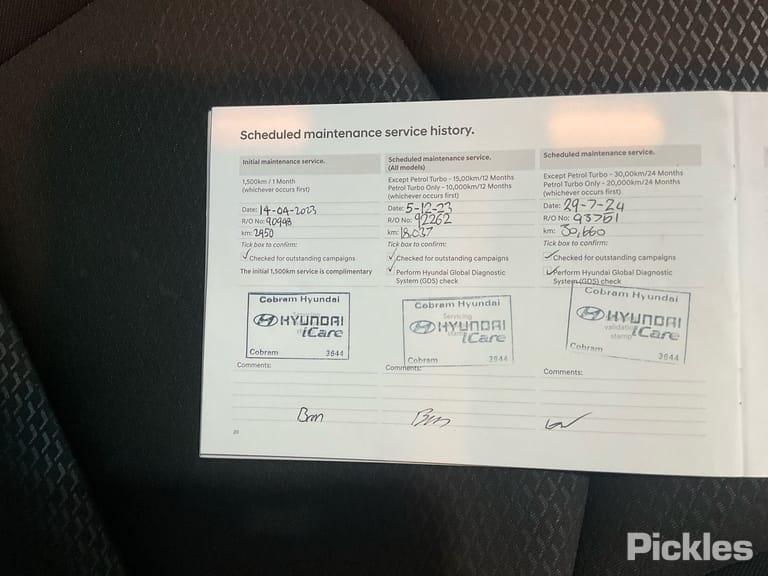 Scheduled maintenance service history.
Initial maintenance service.
1,500km / 1 Month
(whichever occurs first)
Date: 14-04-2023
R/O No: 90948
km: 2950
Tick box to confirm:
Checked for outstanding campaigns
The initial 1,500km service is complimentary
Cobram Hyundai
HYUNDAI
iCare
Cobram 3644
Comments:
Bm
20
Scheduled maintenance service.
(All models)
Except Petrol Turbo - 15,00km/12 Months
Petrol Turbo Only - 10,000km/12 Months
(whichever occurs first)
Date: 5-12-23
R/O No: 92262
km: 18037
Tick box to confirm:
Checked for outstanding campaigns
Perform Hyundai Global Diagnostic
System (GDS) check
Cobram Hyundai
Servicing
HYUNDAI
stamp
iCare
Cobram 3644
Comments:
Scheduled maintenance service.
Except Petrol Turbo - 30,00km/24 Months
Petrol Turbo Only - 20,000km/24 Months
(whichever occurs first)
Date: 29-7-24
R/O No: 93751
km: 30,660
Tick box to confirm:
Checked for outstanding campaigns
Perform Hyundai Global Diagnostic
System (GDS) check
Cobram Hyundai
HYUNDAI
validation
stamp
iCare
Cobram 3644
Comments:
Pickles